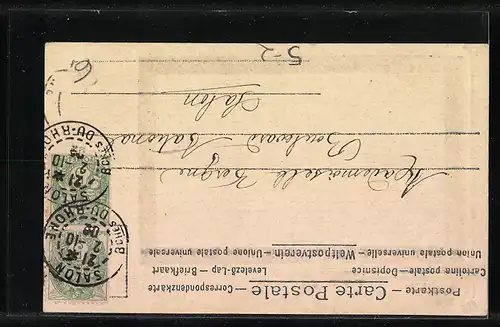 Postkarte — Carte Postale — Correspondenzkarte
Cartolina postale — Dopisnice — Levelező-Lap — Briefkaart
Union postale universelle — Weltpostverein — Unione postale universale
Mademoiselle
Boulevard
Salon
SALON
BCHES DU-RHONE
21 10
02
SALON
BCHES DU-RHONE
21 10
02
5-2
6,-